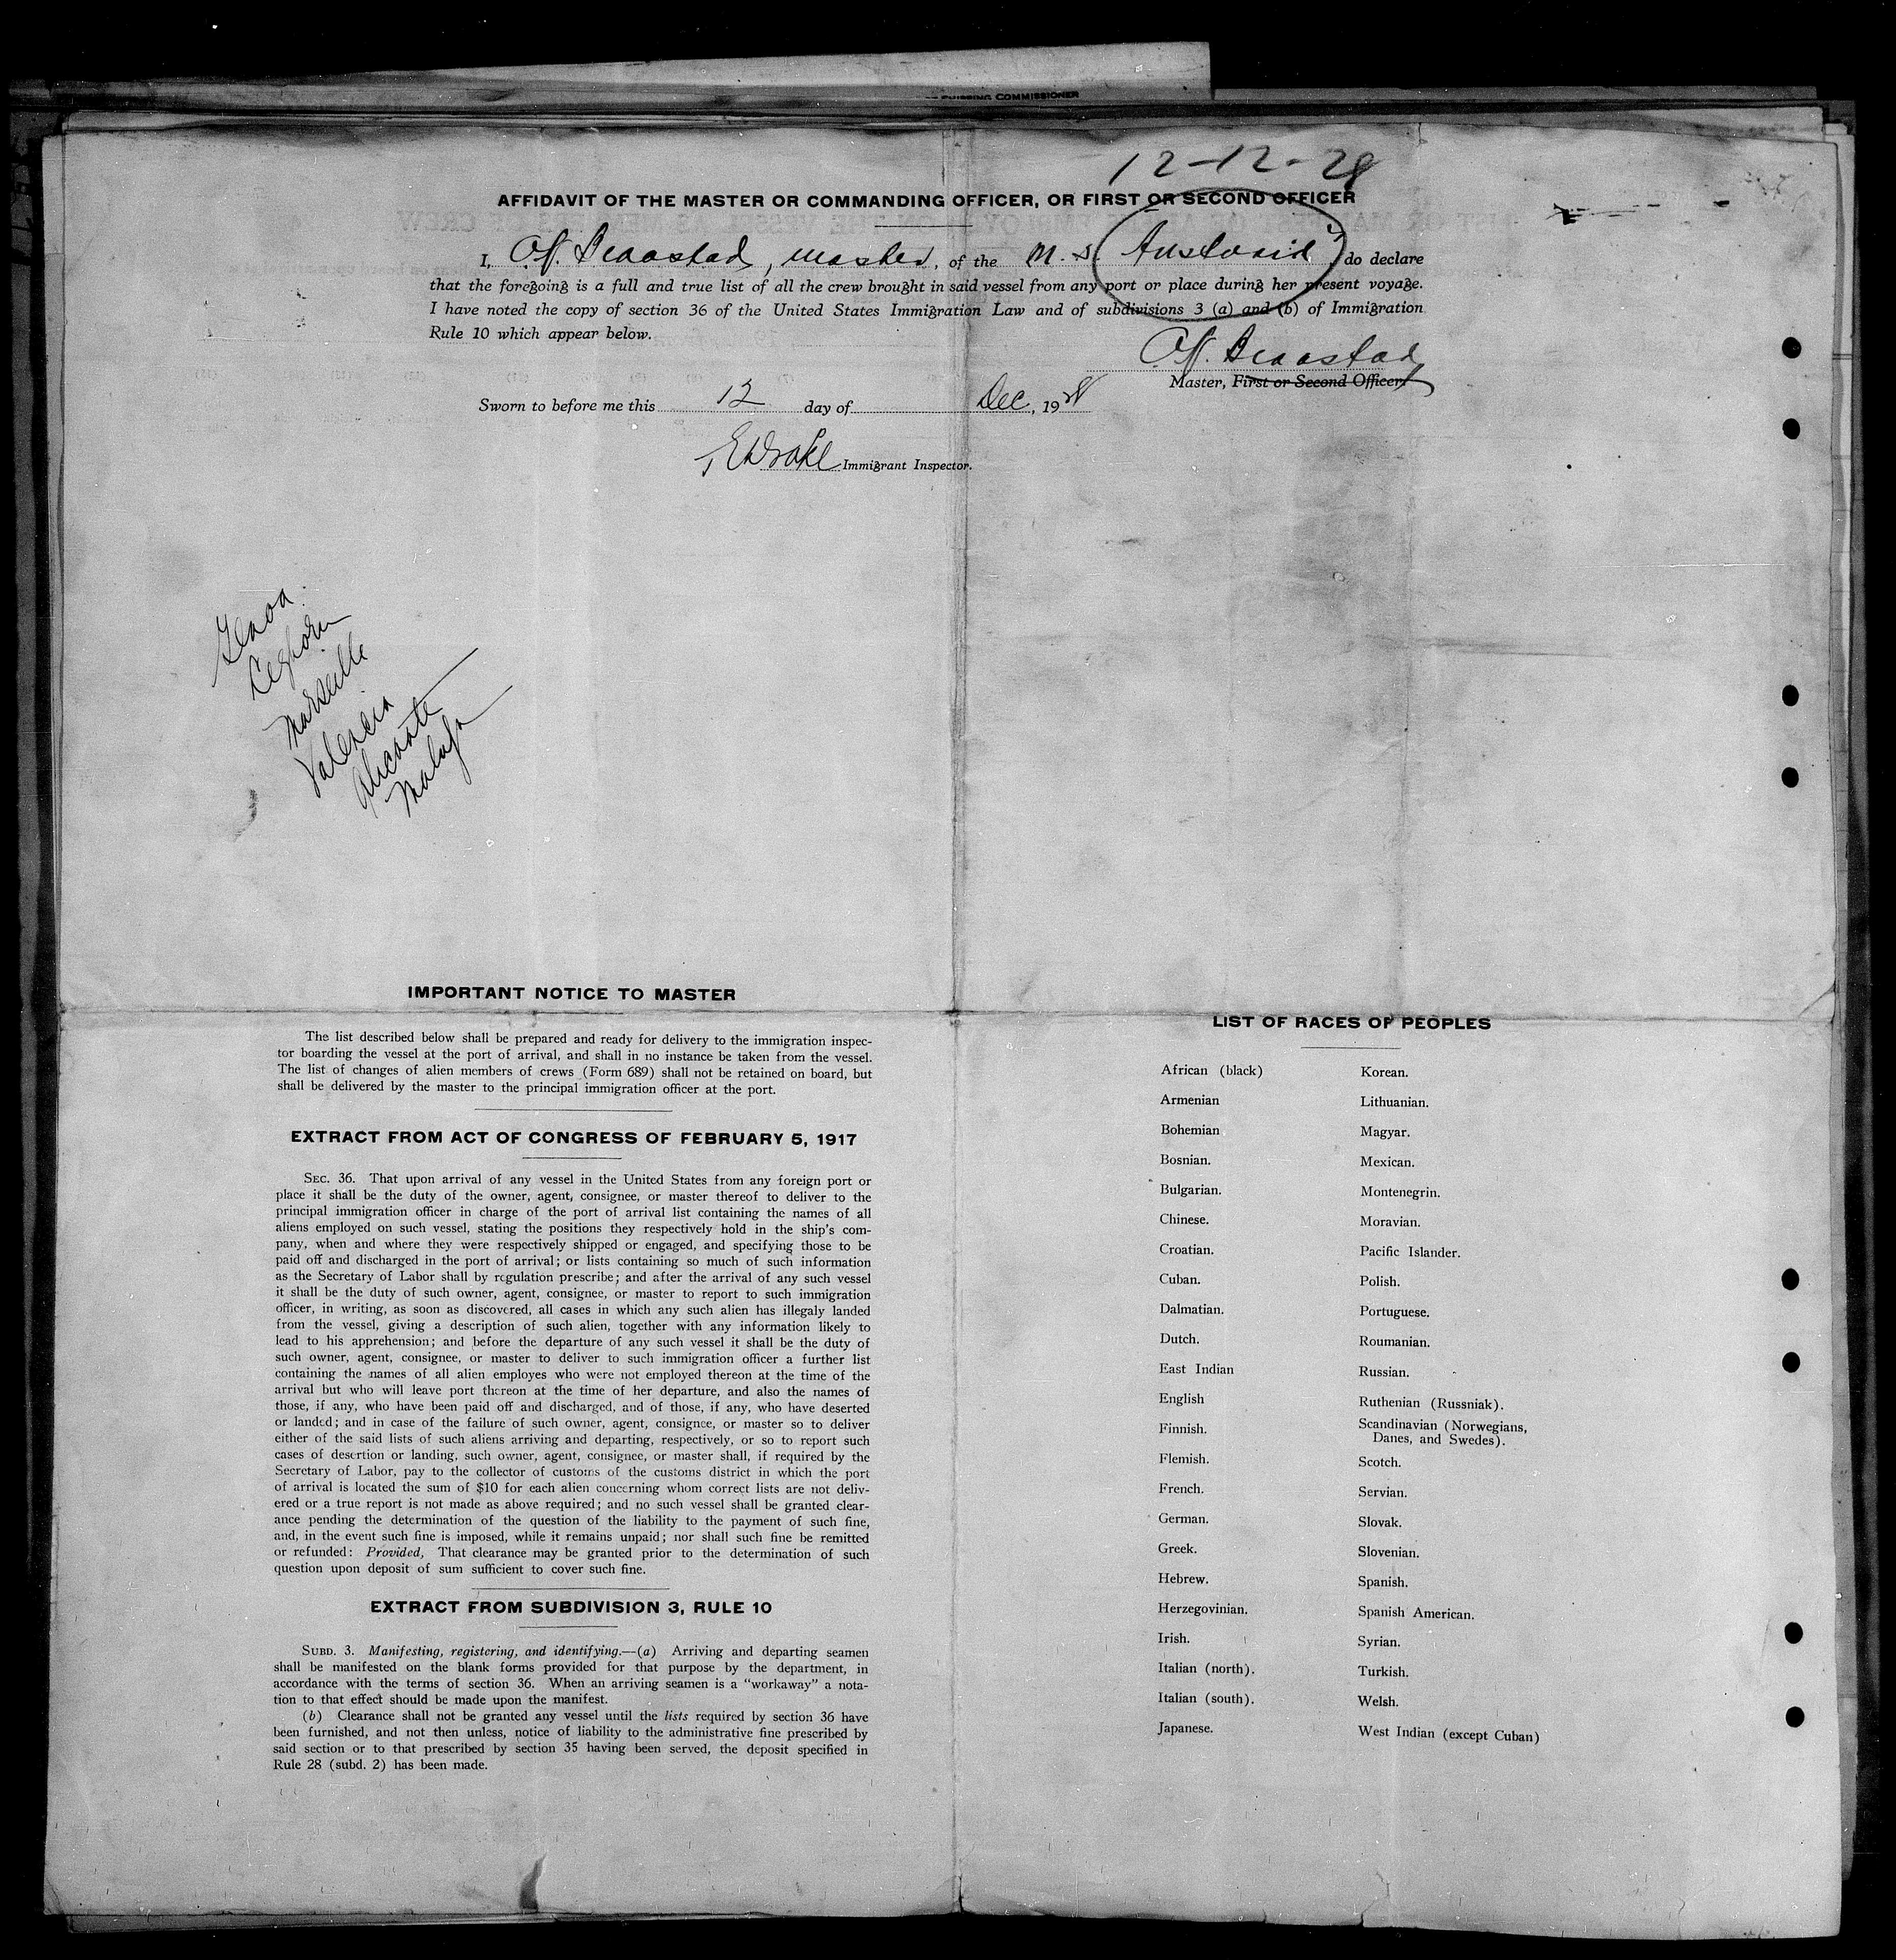 SHIPPING COMMISSIONER
12-12-28
AFFIDAVIT OF THE MASTER OR COMMANDING OFFICER, OR FIRST OR SECOND OFFICER
I, master, of the M.S. do declare
that the foregoing is a full and true list of all the crew brought in said vessel from any port or place during her present voyage.
I have noted the copy of section 36 of the United States Immigration Law and of subdivisions 3 (a) and (b) of Immigration
Rule 10 which appear below.
Master, First or Second Officer
Sworn to before me this 12 day of Dec, 1928
Immigrant Inspector.
Genoa
Leghorn
Marseille
Valencia
Alicante
Malaga
IMPORTANT NOTICE TO MASTER
The list described below shall be prepared and ready for delivery to the immigration inspec-
tor boarding the vessel at the port of arrival, and shall in no instance be taken from the vessel.
The list of changes of alien members of crews (Form 689) shall not be retained on board, but
shall be delivered by the master to the principal immigration officer at the port.
EXTRACT FROM ACT OF CONGRESS OF FEBRUARY 5, 1917
SEC. 36. That upon arrival of any vessel in the United States from any foreign port or
place it shall be the duty of the owner, agent, consignee, or master thereof to deliver to the
principal immigration officer in charge of the port of arrival list containing the names of all
aliens employed on such vessel, stating the positions they respectively hold in the ship's com-
pany, when and where they were respectively shipped or engaged, and specifying those to be
paid off and discharged in the port of arrival; or lists containing so much of such information
as the Secretary of Labor shall by regulation prescribe; and after the arrival of any such vessel
it shall be the duty of such owner, agent, consignee, or master to report to such immigration
officer, in writing, as soon as discovered, all cases in which any such alien has illegaly landed
from the vessel, giving a description of such alien, together with any information likely to
lead to his apprehension; and before the departure of any such vessel it shall be the duty of
such owner, agent, consignee, or master to deliver to such immigration officer a further list
containing the names of all alien employes who were not employed thereon at the time of the
arrival but who will leave port thereon at the time of her departure, and also the names of
those, if any, who have been paid off and discharged, and of those, if any, who have deserted
or landed; and in case of the failure of such owner, agent, consignee, or master so to deliver
either of the said lists of such aliens arriving and departing, respectively, or so to report such
cases of desertion or landing, such owner, agent, consignee, or master shall, if required by the
Secretary of Labor, pay to the collector of customs of the customs district in which the port
of arrival is located the sum of $10 for each alien concerning whom correct lists are not deliv-
ered or a true report is not made as above required; and no such vessel shall be granted clear-
ance pending the determination of the question of the liability to the payment of such fine,
and, in the event such fine is imposed, while it remains unpaid; nor shall such fine be remitted
or refunded: Provided, That clearance may be granted prior to the determination of such
question upon deposit of sum sufficient to cover such fine.
EXTRACT FROM SUBDIVISION 3, RULE 10
SUBD. 3. Manifesting, registering, and identifying.—(a) Arriving and departing seamen
shall be manifested on the blank forms provided for that purpose by the department, in
accordance with the terms of section 36. When an arriving seamen is a "workaway" a nota-
tion to that effect should be made upon the manifest.
(b) Clearance shall not be granted any vessel until the lists required by section 36 have
been furnished, and not then unless, notice of liability to the administrative fine prescribed by
said section or to that prescribed by section 35 having been served, the deposit specified in
Rule 28 (subd. 2) has been made.
LIST OF RACES OF PEOPLES
African (black)
Armenian
Bohemian
Bosnian.
Bulgarian.
Chinese.
Croatian.
Cuban.
Dalmatian.
Dutch.
East Indian
English
Finnish.
Flemish.
French.
German.
Greek.
Hebrew.
Herzegovinian.
Irish.
Italian (north).
Italian (south).
Japanese.
Korean.
Lithuanian.
Magyar.
Mexican.
Montenegrin.
Moravian.
Pacific Islander.
Polish.
Portuguese.
Roumanian.
Russian.
Ruthenian (Russniak).
Scandinavian (Norwegians,
Danes, and Swedes).
Scotch.
Servian.
Slovak.
Slovenian.
Spanish.
Spanish American.
Syrian.
Turkish.
Welsh.
West Indian (except Cuban)